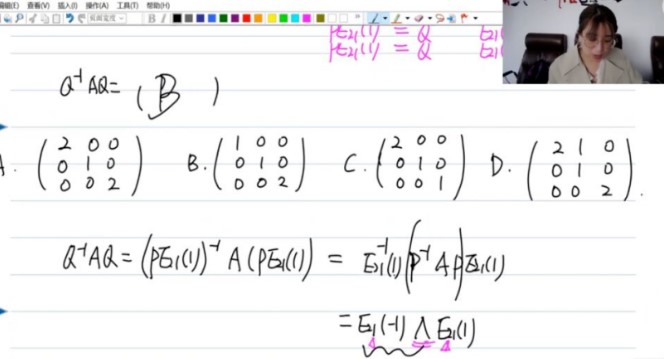 编辑(E) 查看(V) 插入(I) 操作(A) 工具(T) 帮助(H)
PE₂₁(1) = Q E₂₁(
PE₂₁(1) = Q E₂₁(
Q⁻¹AQ = ( B )
A. (2 0 0 B. (1 0 0 C. (2 0 0 D. (2 1 0
0 1 0 0 1 0 0 1 0 0 1 0
0 0 2) 0 0 2) 0 0 1) 0 0 2).
Q⁻¹AQ = (PE₂₁(1))⁻¹ A (PE₂₁(1)) = E₂₁⁻¹(1)(P⁻¹AP)E₂₁(1)
= E₂₁(-1) Λ E₂₁(1)